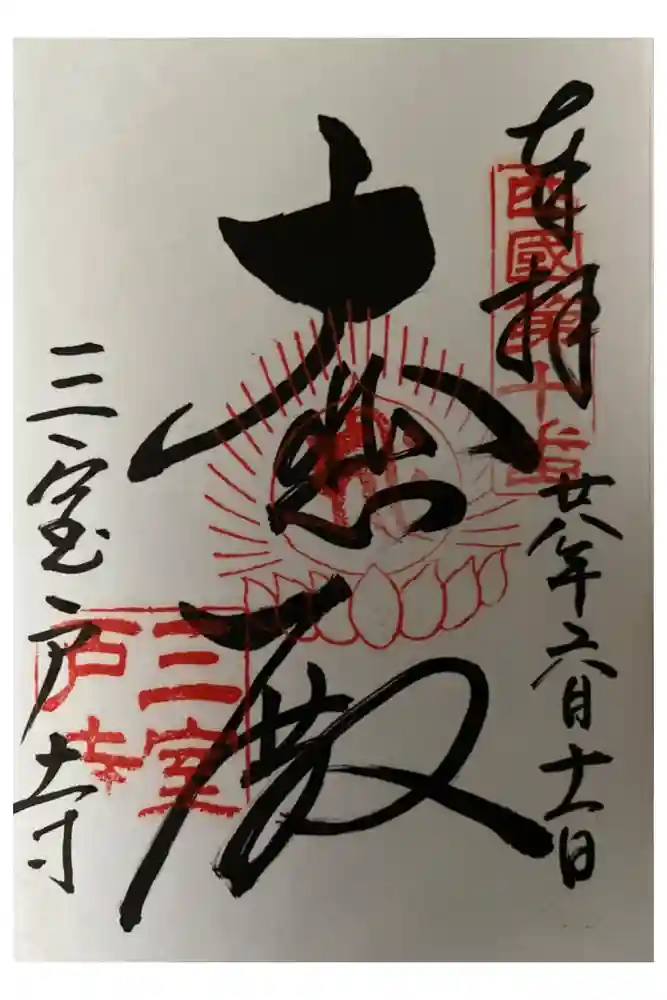 奉拝
西國第十番
廿八年六月十一日
大悲殿
三室戸寺
三室
戸寺